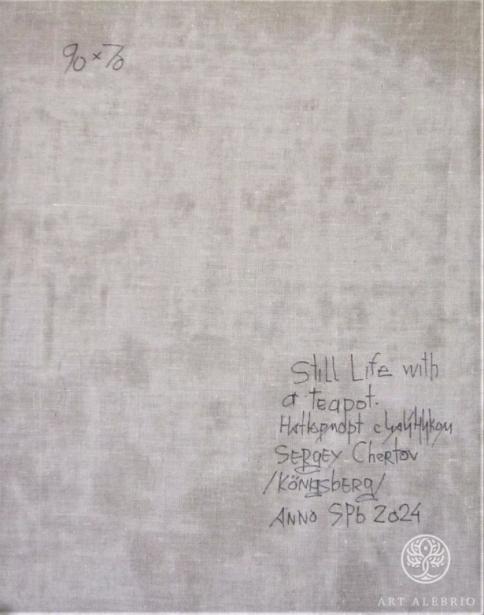 90×70
Still Life with
a teapot.
Натюрморт с чайником
Sergey Chertov
/Königsberg/
Anno SPb 2024
ART ALEBRIO